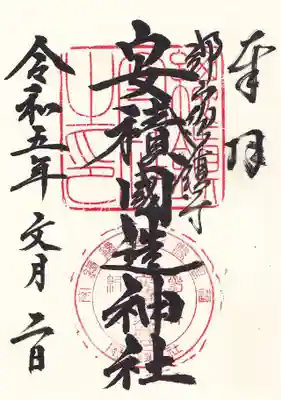 奉拝
郡山総鎮守
安積國造神社
令和五年 文月 二日